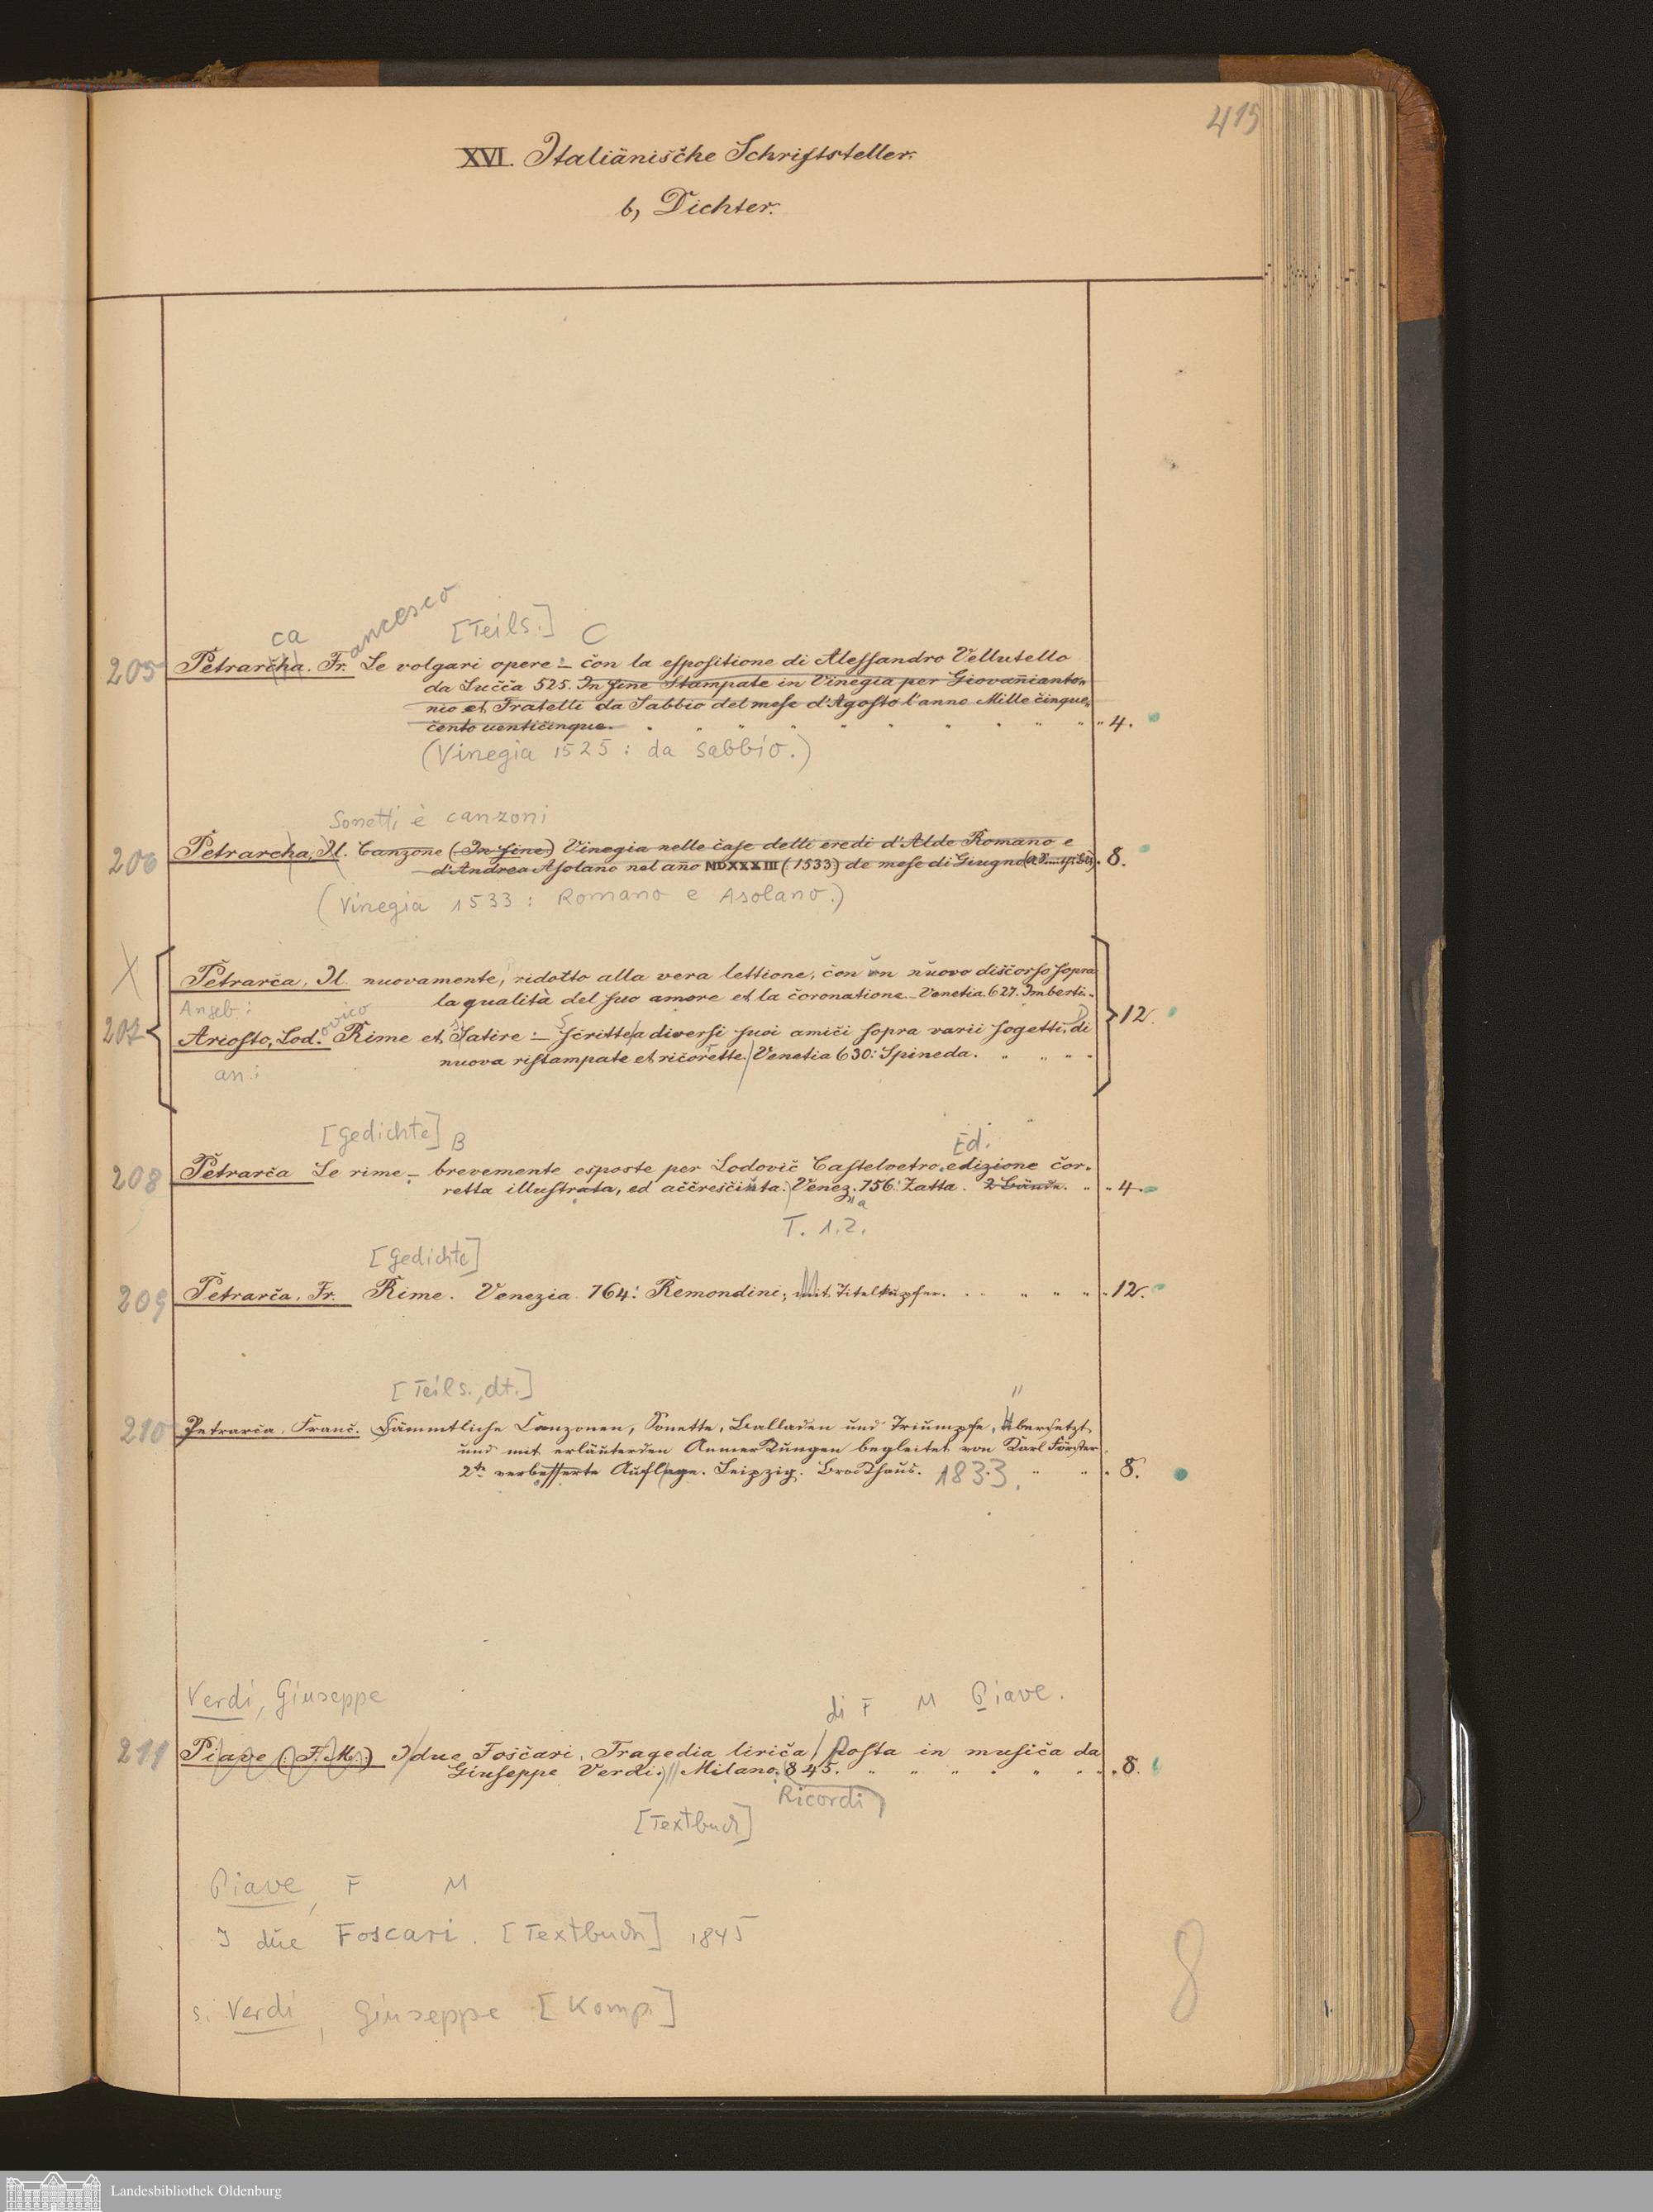 415
XVI. Italiänische Schriftsteller.
b, Dichter.
ca ancesco [Teils.] C
205 Petrarcha. Fr. Le volgari opere – con la espositione di Alessandro Vellutello
da Lucca 525. In fine Stampate in Vinegia per Giovanianto-
nio et Fratelli da Sabbio del mese d'Agosto l'anno Mille cinque
cento venticinque. " 4.
(Vinegia 1525: da Sabbio.)
Sonetti è canzoni
206 Petrarcha, Il. Canzone (In fine) Vinegia nelle case delli eredi d'Aldo Romano e
d'Andrea Asolano nel ano MDXXXIII (1533) de mese di Giugno 8.
(Vinegia 1533: Romano e Asolano.)
X Petrarca, Il nuovamente, ridotto alla vera lettione, con un nuovo discorso sopra
la qualità del suo amore et la coronatione. Venetia. 627. Imberti.
Angeb.: ovico S D
207 Ariosto, Lod. Rime et Satire – scritte a diversi suoi amici sopra varii sogetti, di 12.
nuova ristampate et ricorette. Venetia 630: Spineda.
an.:
[Gedichte] B Ed.
208 Petrarca Le rime – brevemente esposte per Lodovic Castelvetro, edizione cor-
retta illustrata, ed accresciuta. Venez. 756: Zatta. 2 Bände. " 4.
T. 1.2.
[Gedichte]
209 Petrarca, Fr. Rime. Venezia 764: Remondini; mit Titelkupfer. 12.
[Teils., dt.]
210 Petrarca, Franc. Sämmtliche Canzonen, Sonette, Balladen und Triumpfe, übersetzt
und mit erläuterden Anmerkungen begleitet von Karl Förster
2te verbesserte Auflage. Leipzig. Brockhaus. 1833. 8.
Verdi, Giuseppe di F M Piave.
211 Piave (: F. M. :) I due Foscari, Tragedia lirica posta in musica da
Giuseppe Verdi. Milano. 845. 8.
Ricordi)
[Textbuch]
Piave, F M
I due Foscari. [Textbuch] 1845
8
s. Verdi, Giuseppe [Komp.]
Landesbibliothek Oldenburg